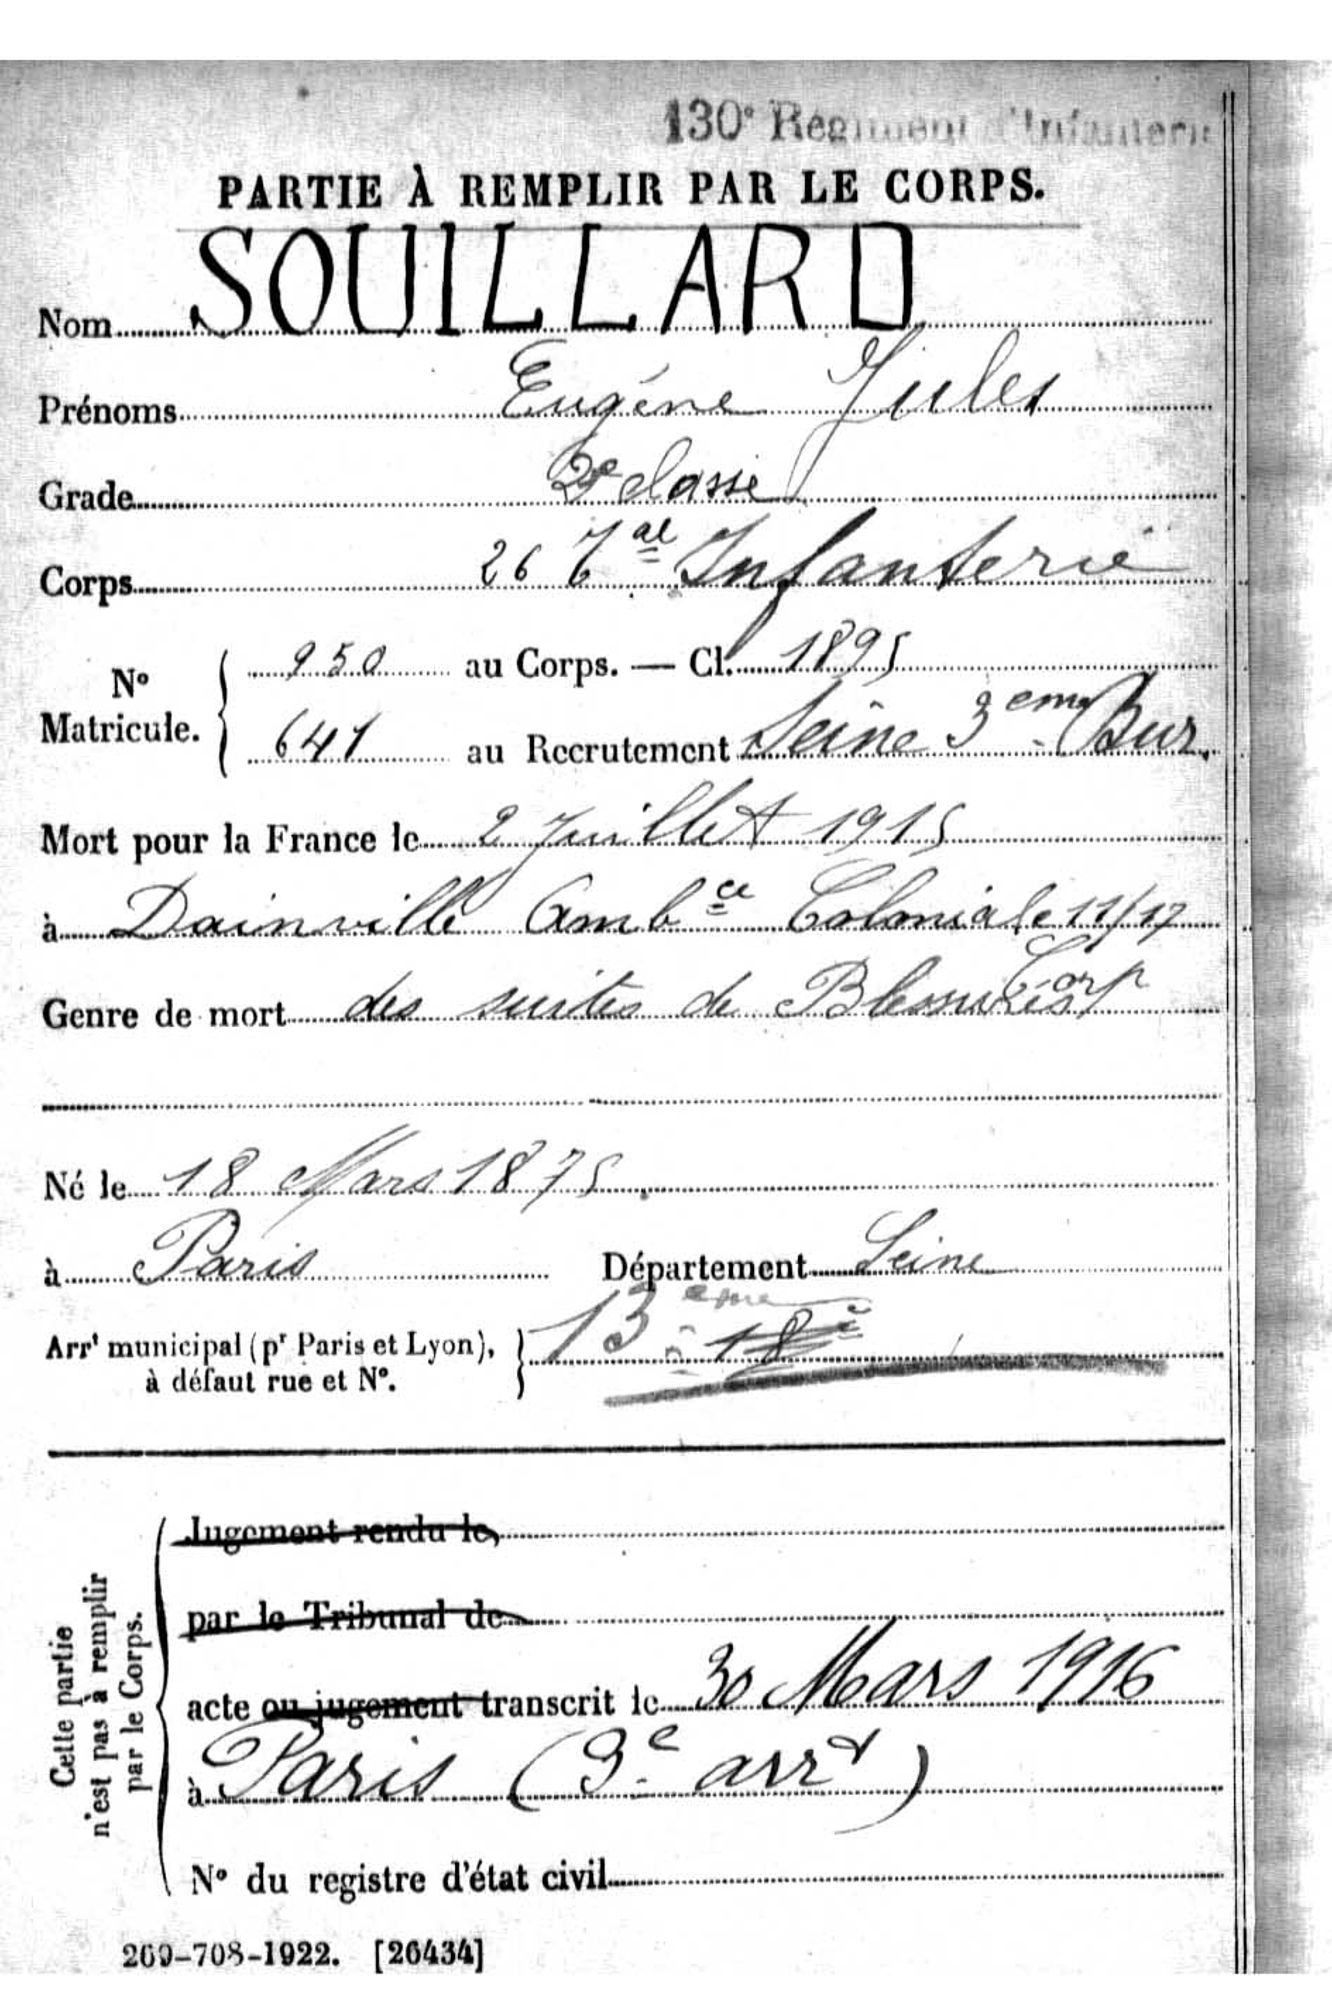 130e Régiment d'Infanterie
PARTIE À REMPLIR PAR LE CORPS.
Nom SOUILLARD
Prénoms Eugéne Jules
Grade 2e classe
Corps 26 Tal Infanterie
No Matricule. 950 au Corps. — Cl. 1895
641 au Recrutement Seine 3eme Bur.
Mort pour la France le 2 Juillet 1915
à Dainville Ambce Coloniale 11/17
Corp
Genre de mort des suites de Blessures
Né le 18 Mars 1875.
à Paris Département Seine
Arrt municipal (pr Paris et Lyon), à défaut rue et No. 13eme 18e
Cette partie n'est pas à remplir par le Corps.
Jugement rendu le,
par le Tribunal de
acte ou jugement transcrit le 30 Mars 1916
à Paris (3e arrt)
No du registre d'état civil
269-708-1922. [26434]